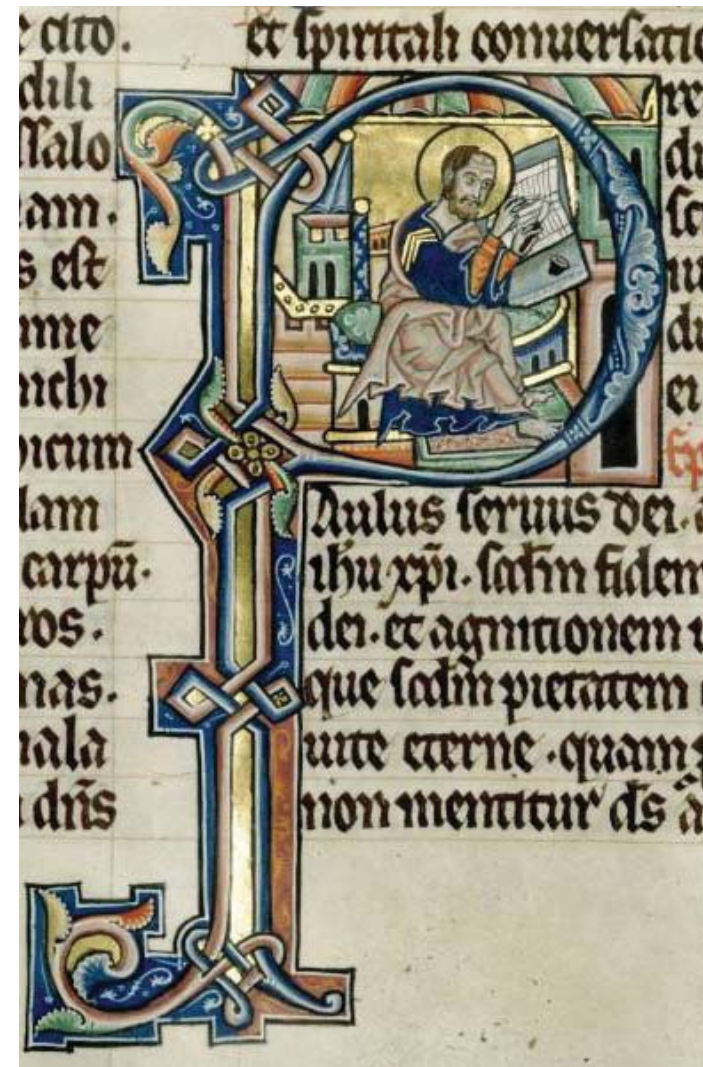 e cito.
dili
ssalo
am.
s est
ume
ichi
hicum
lam
carpū.
ros.
nas.
ala
dn̄s
et spiritali conuersatio
P
re
ei
Ep
Aulus seruus dei. a
ihu xp̄i. scd̄m fidem
dei. et agnitionem u
que scd̄m pietatem
uite eterne. quam
non mentitur ds̄ a